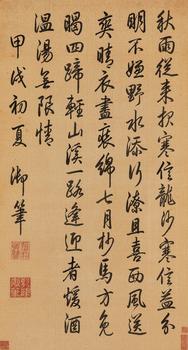 秋雨從來報寒信龍沙寒信益分
明不嫌野水添行潦且喜西風送
爽晴衣盡裹綿七月杪馬方免
暍四蹄輕山溪一路逢迎者煖酒
溫湯無限情
甲戌初夏 御筆